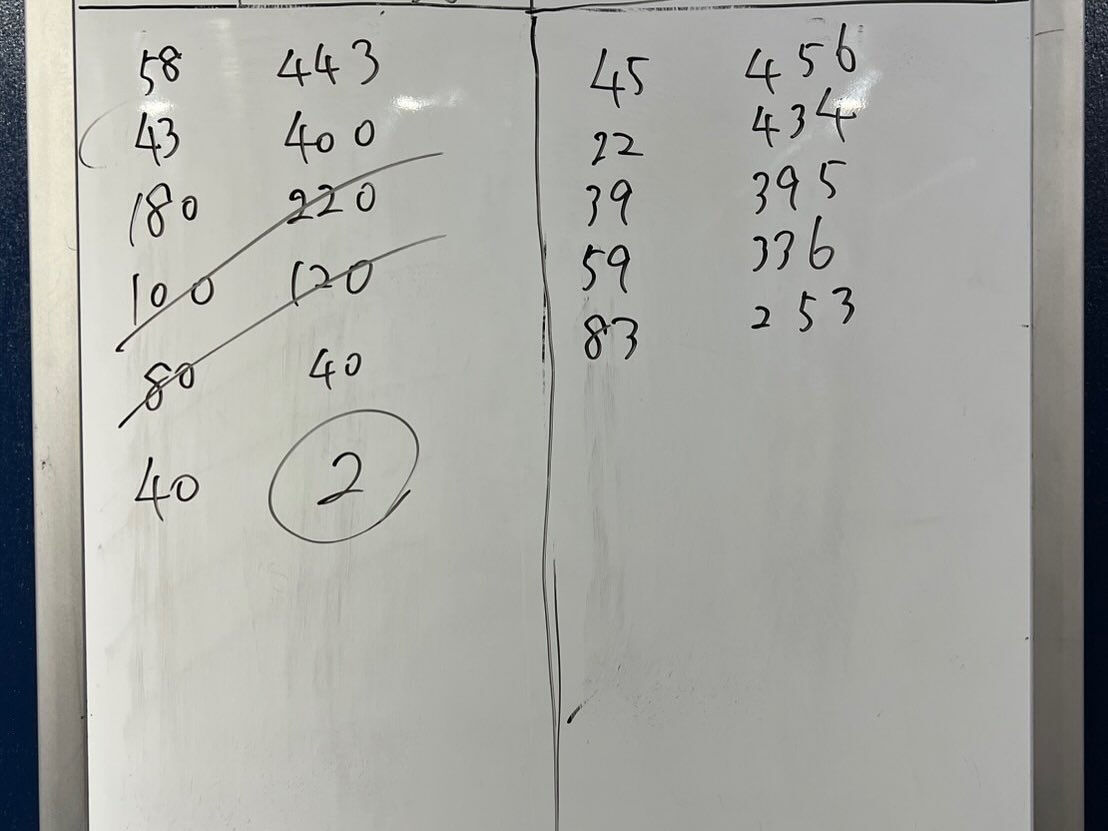 58 443
43 400
180 220
100 120
80 40
40 2
45 456
22 434
39 395
59 336
83 253